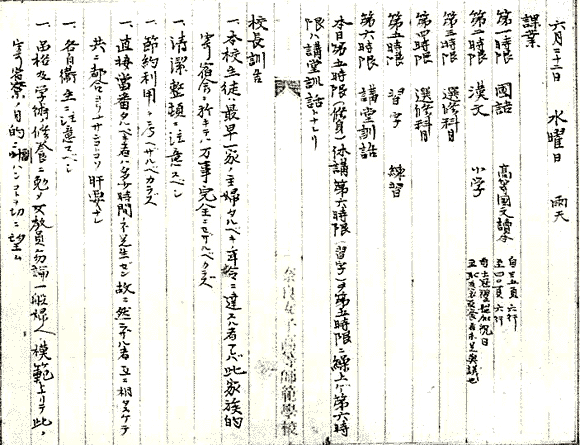 六月二十二日 水曜日 雨天
課業
第一時限 國語 高等國文讀本 自三五頁六行 至四〇頁六行
第二時限 漢文 小学
第三時限 選修科目
第四時限 選修科目
第五時限 習字 練習
第六時限 講堂訓話
本日第五時限(修身)休講第六時限(習字)ヲ第五時限ニ繰上ゲ第六時
限ハ講堂訓話トナレリ
奈良女子高等師範學校
校長訓告
一、本校生徒ハ最早一家ノ主婦タルベキ年齢ニ達スル者ナレバ此家族的
寄宿舎ニ於キテハ万事完全ニセザルベカラズ
一、清潔整頓ニ注意スベシ
一、節約利用ヲ考ヘザルベカラズ
一、直接當番タルベキ者ハ多少時間ニ不足生ゼン故ニ然ラザル者互ニ相タスケテ
共ニ都合ヨリナサンコソ肝要ナレ
一、各自衛生ニ注意スベシ
一、品格及学術修養ニ勉メ女教員ハ勿論一般婦人ノ模範トナリテ此ノ
寄宿寮ノ目的ニ ハンコトヲ切ニ望ム